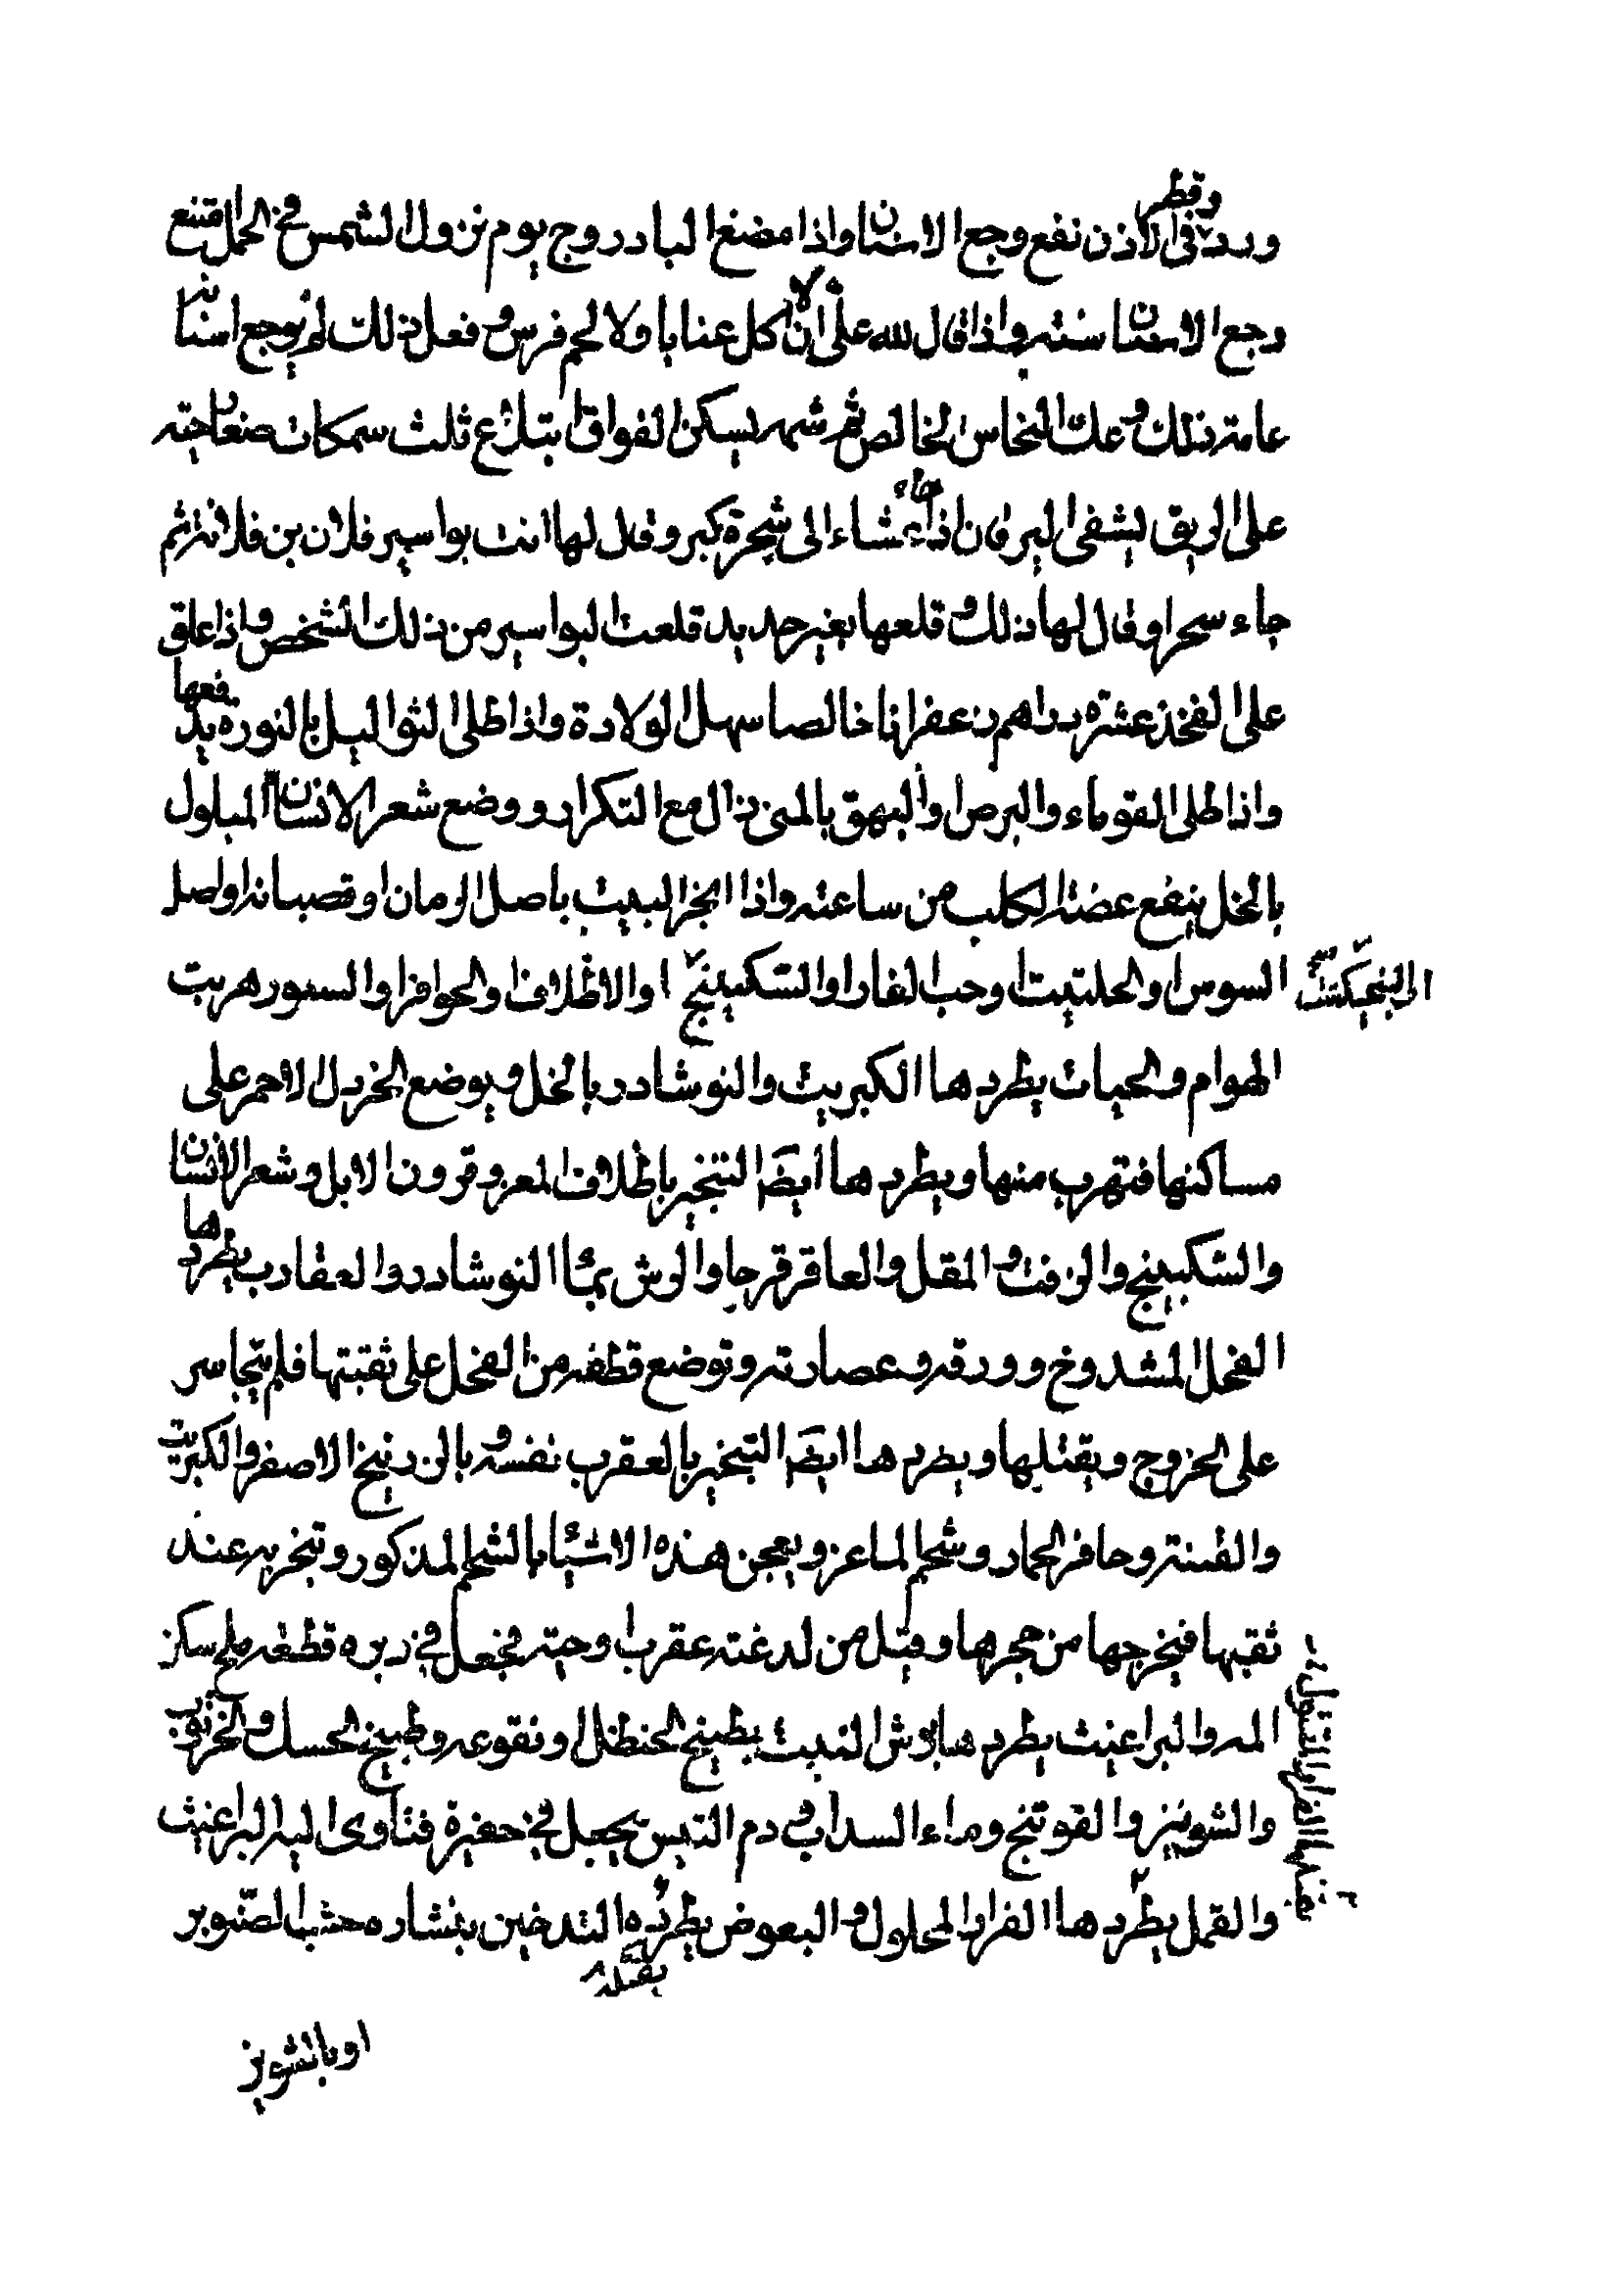 ورد وقطر في الاذن نفع وجع الاسنان واذا مضغ البادروج يوم نزول الشمس في الحمل امتنع
وجع الاسنان سنته واذا قال لله على ان لا اكل عنابا ولا لحم فرس وفعل ذلك لم يوجع اسنانه
عامة ذلك وعلك النحاس الخالص ثم شمه يسكن الفواق ابتلاع ثلث سمكات صغار حية
على الريق يشفى اليرقان اذا جاء عشاء الى شجرة كبر وقال لها انت بواسير فلان بن فلانة ثم
جاء سحرا وقال لها ذلك وقلعها بغير حديد قلعت البواسير من ذلك الشخص واذا علق
على الفخذ عشرة دراهم زعفرانا خالصا سهل الولادة واذا طلى الثواليل بالنورة يدفعها
واذا طلى القوباء والبرص او البهق بالمنى زال مع التكرار ووضع شعر الانسان المبلول
بالخل ينفع عضة الكلب من ساعته واذا ابخر البيت باصل الرمان او قضبانه او اصل
السوس او الحلتيت او حب الغار او السكبينج او الاظلاف او الحوافر او السيور هربت
الهوام والحيات يطردها الكبريت والنوشادر بالخل ويوضع الخردل الاحمر على
مساكنها فتهرب منها ويطردها ايضا التبخير باظلاف المعز وقرون الابل وشعر الانسان
والسكبينج والزفت والمقل والعاقرقرحا والرش بماء النوشادر والعقارب يطردها
الفجل المشدوخ وورقه وعصارته وتوضع قطعة من الفجل على ثقبتها فلم يتجاسر
على الخروج ويقتلها ويطردها ايضا التبخير بالعقرب نفسه وبالزرنيخ الاصفر والكبريت
والقنة وحافر الحمار وشحم الماعز ويعجن هذه الاشياء بالشحم المذكور وتبخر به عند
ثقبها فيخرجها من حجرها وقيل من لدغته عقرب او حية فجعل في دبره قطعة ملح سكن
المه والبراغيث يطردها رش البيت بطبيخ الحنظل او نقوعه وطبيخ الحسك والخرنوب
والشونيز والفوتنج وماء السداب ودم التيس يجعل في حفيرة فتاوى اليه البراغيث
والقمل يطردها الفرار المحلول والبعوض يطرده التدخين بنشارة خشب الصنوبر
يقتله
او بالشونيز